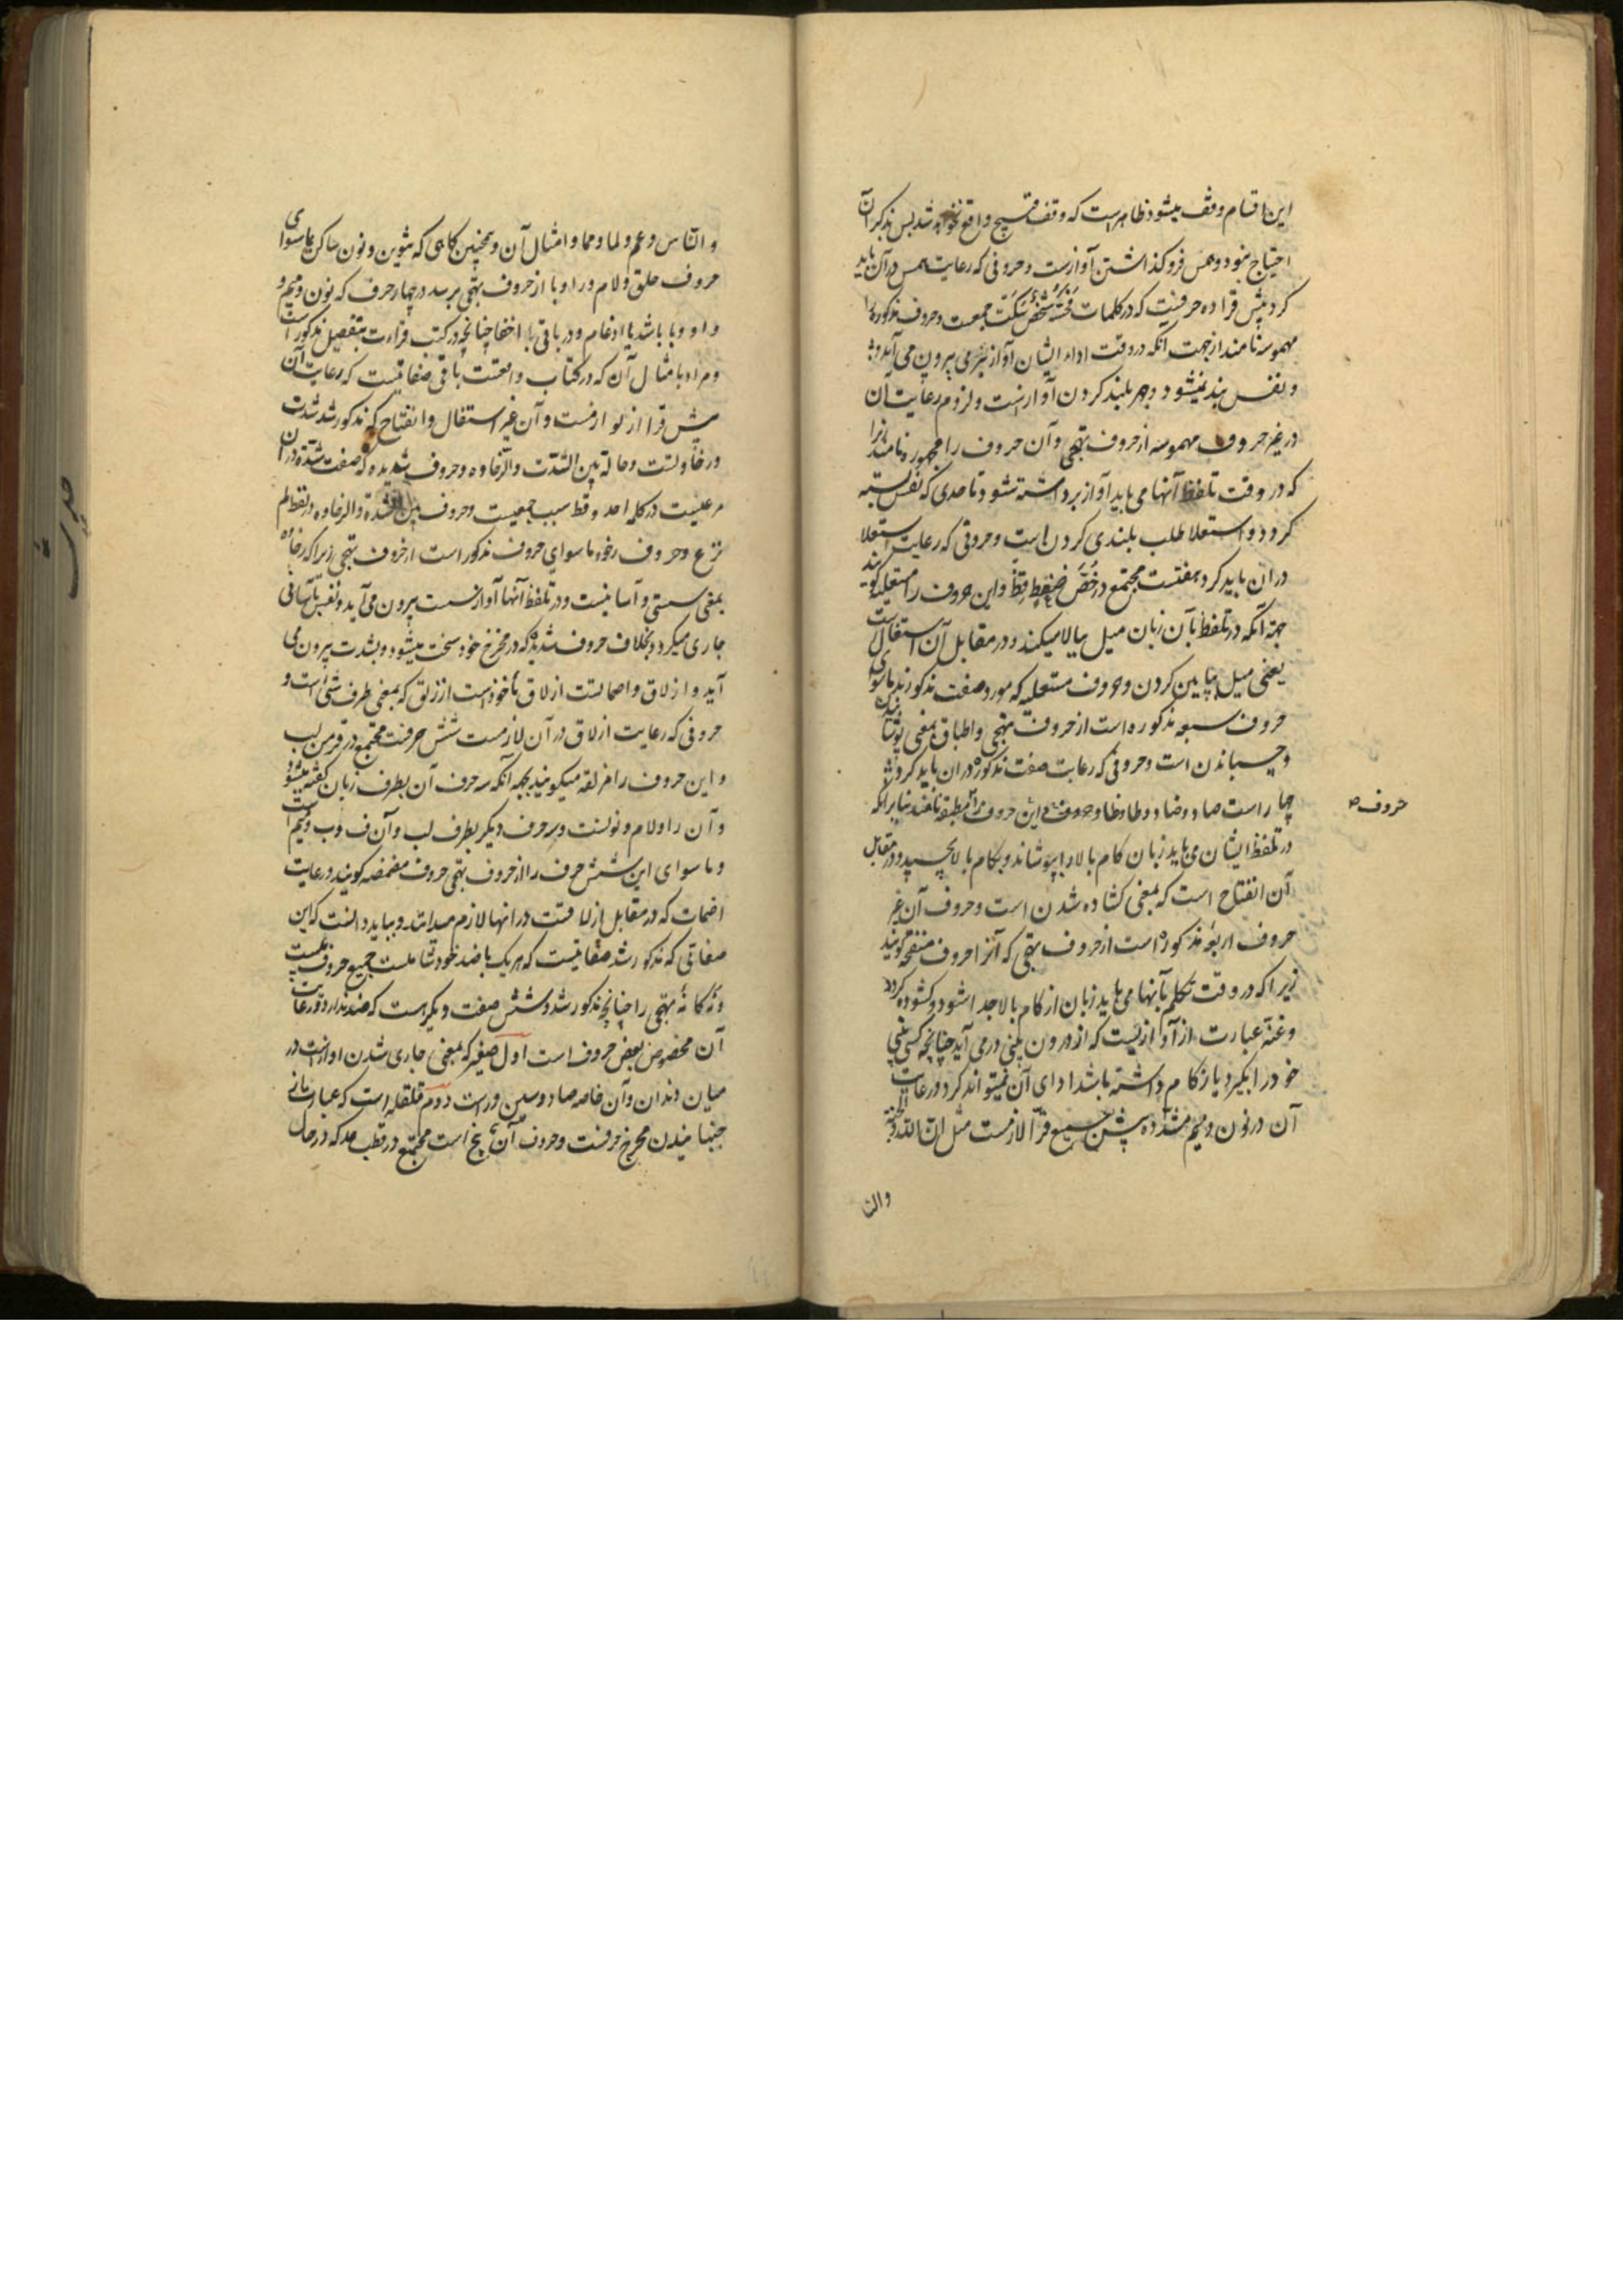 این اقسام وقف میشود ظاهر است که وقف قبیح واقع نخواهد شد پس بذکر آن
احتیاج نبود و همس فرو کذاشتن آوازست و حروفی که رعایت همس در آن باید
کرد پیش قرا ده حرفیست که در کلمات فحثه شخص سکت جمعست و حروف مذکوره را
مهموسه نامند از جهت انکه در وقت اداء ایشان آواز بنرمی بیرون می آید و
و نفس بند نمیشود و جهر بلند کردن آوازست و لزوم رعایت آن
در غیر حروف مهموسه از حروف تهجی و آن حروف را مجهوره نامند زیرا
که در وقت تلفظ آنها می باید آواز برداشته شود تا حدی که نفس بسته
کردد و استعلا طلب بلندی کردن است و حروفی که رعایت استعلا
در ان باید کرد هفتست مجتمع در خص ضغط قظ و این حروف را مستعلیه کویند
جهة آنکه در تلفظ بآن زبان میل ببالا میکند و در مقابل آن استفال است
یعنی میل بپایین کردن و حروف مستعلیه که مورد صفت مذکورند ماسوای
حروف سبعه مذکوره است از حروف تهجی و اطباق بمعنی پوشانیدن
و چسباندن است و حروفی که رعایت صفت مذکوره در ان باید کرد
چهار است صاد و ضاد و طا و ظا و این حروف را مطبقه نامند بنابر آنکه
حروف
در تلفظ ایشان می باید زبان کام بالا را بپوشاند و بکام بالا بچسپد و در مقابل
آن انفتاح است که بمعنی کشاده شدن است و حروف آن غیر
حروف اربعه مذکوره است از حروف تهجی که آنرا حروف منفتحه کویند
زیرا که در وقت تکلم بآنها می باید زبان از کام بالا جدا شود و کشوده کردد
و غنه عبارت از آوازیست که از درون بینی در می آید چنانچه کسی بینی
خود را بگیرد یا زکام داشته باشد ادای آن نمیتواند کرد و رعایت
آن در نون و میم مشدده پیش جمیع قرا لازمست مثل ان الله و الجنة
والنا
و الناس و عم و لما و مما و امثال آن و همچنین کاهی که تنوین و نون ساکن بماسوای
حروف حلق و لام و را و با از حروف تهجی برسد در چهار حرف که نون و میم و
واو و یا باشد با ادغام و در باقی با اخفا چنانچه در کتب قراءت بتفصیل مذکور است
و مراد بامثال آن که در کتاب واقعست باقی صفاتیست که رعایت آن
پیش قرا از لوازمست و آن غیر استفال و انفتاح که مذکور شد شدت
و رخاوتست و حالة بین الشدت والرخاوه و حروف شدیده که صفت شدة در آن
مرعیست در کلمه اجد و قط سبب جمعیست و حروف بین الشدة والرخاوه در لفظ لم
نرع و حروف رخوه ماسوای حروف مذکور است از حروف تهجی زیرا که رخاوه
بمعنی سستی و آسانیست و در تلفظ آنها آواز سست بیرون می آید و نفس بآسانی
جاری میکردد بخلاف حروف شدیده که در مخرج خود سخت میشود و بشدت بیرون می
آید و ازلاق و اصماتست ازلاق مأخوذست از زلق که بمعنی طرف شیء است و
حروفی که رعایت ازلاق در آن لازمست شش حرفست مجتمع در فر من لب
و این حروف را مزلقه میکویند بجهه آنکه سه حرف آن بطرف زبان کفته میشود
و آن را و لام و نونست و سه حرف دیکر بطرف لب و آن ف و ب و میم است
و ماسوای این شش حرف را از حروف تهجی حروف مصمته کویند و رعایت
اصمات که در مقابل ازلاقست در انها لازم میدانند و بباید دانست که این
صفاتی که مذکور شد صفاتیست که هر یک با ضد خود شاملست جمیع حروف بیست
و نه کانه تهجی را چنانچه مذکور شد و شش صفت دیکر هست که ضد ندارد و رعایت
آن مخصوص بعض حروف است اول صفیر که بمعنی جاری شدن اواز است در
میان دندان و آن خاصه صاد و سین و زاست دوم قلقله است که عبارت از
جنبانیدن مخرج حرفست و حروف آن پنج است مجتمع در قطب جد که در حال